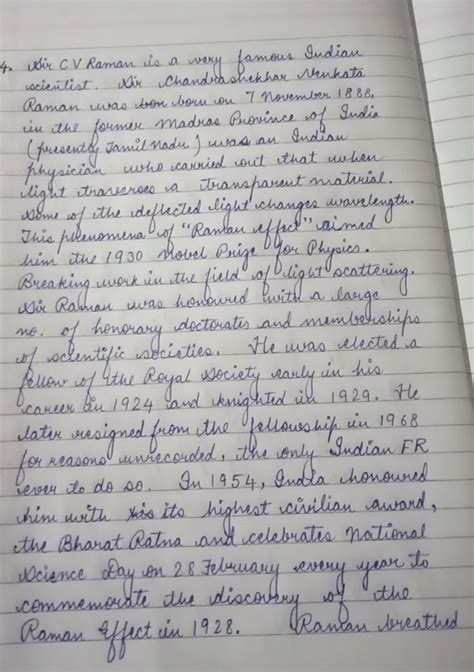 4. Sir C V Raman is a very famous Indian
scientist. Sir Chandrashekhar Venkata
Raman was bon born on 7 November 1888.
in the former Madras Province of India
(presently Tamil Nadu) was an Indian
physician who carried out that when
light traverses a transparent material.
Some of the deflected light changes wavelength.
This phenomena of "Raman effect" aimed
him the 1930 Nobel Prize for Physics.
Breaking work in the field of light scattering.
Sir Raman was honoured with a large
no. of honorary doctorates and memberships
of scientific societies. He was elected a
fellow of the Royal Society early in his
career in 1924 and knighted in 1929. He
later resigned from the fellowship in 1968
for reasons unrecorded, the only Indian FR
ever to do so. In 1954, India honoured
him with his its highest civilian award,
the Bharat Ratna and celebrates National
Science Day on 28 February every year to
commemorate the discovery of the
Raman Effect in 1928. Raman breathed